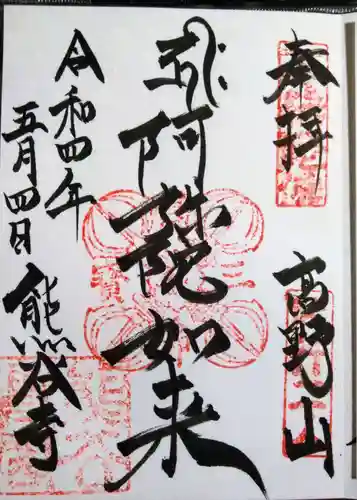 奉拝
高野山
阿弥陀如来
令和四年
五月四日
熊谷寺